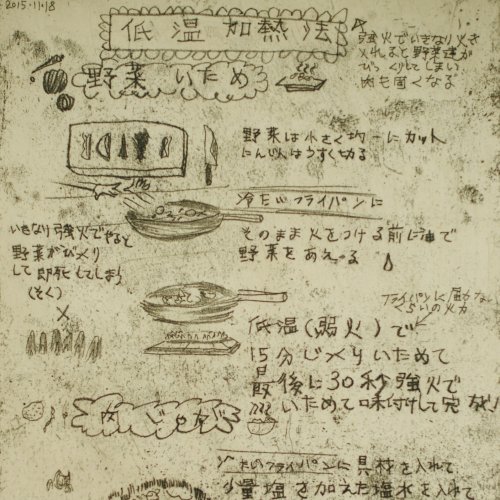 2015.11.18
低温加熱法
強火でいきなり火を
入れると野菜達が
びっくりしてしまい
肉も固くなる
野菜いため
野菜は小さく均一にカット
にんじんはうすく切る
冷たいフライパンに
そのまま火をつける前に油で
野菜をあえる
いきなり強火でやると
野菜がびっくり
して即死してしまう
(そく)
×
フライパンに届かな
くらいの火力
低温(弱火)で
15分じっくりいためて
最後に30秒強火で
いためて味付けして完成
肉じゃが
冷たいフライパンに具材を入れて
少量塩を加えた塩水を入れて